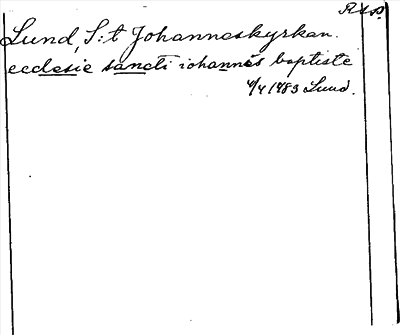 Lund, S:t Johanneskyrkan.
ecclesie sancti iohannes baptiste
4/4 1483 Lund.